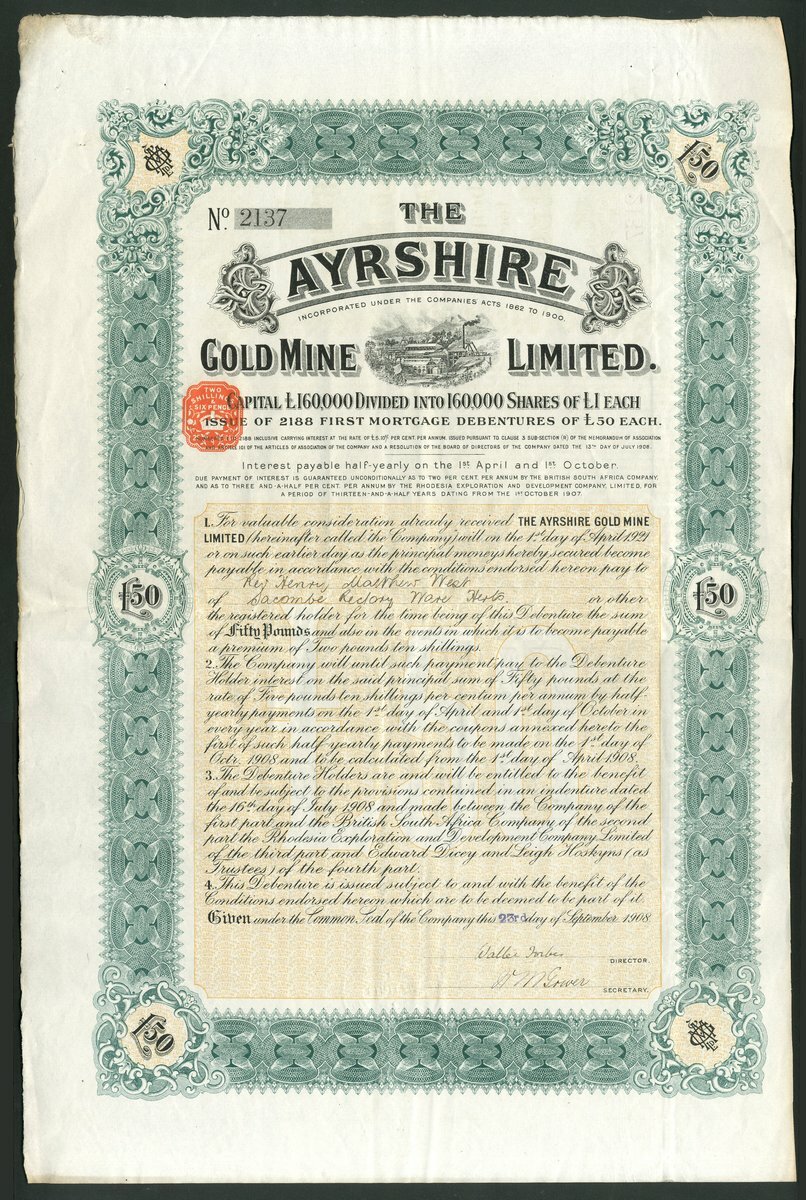 £50
No. 2137
THE
AYRSHIRE
INCORPORATED UNDER THE COMPANIES ACTS 1862 TO 1900.
GOLD MINE LIMITED.
TWO SHILLINGS & SIX PENCE
CAPITAL £160,000 DIVIDED INTO 160,000 SHARES OF £1 EACH
ISSUE OF 2188 FIRST MORTGAGE DEBENTURES OF £50 EACH.
2188 INCLUSIVE CARRYING INTEREST AT THE RATE OF £5.10/- PER CENT. PER ANNUM. ISSUED PURSUANT TO CLAUSE 3 SUB-SECTION (R) OF THE MEMORANDUM OF ASSOCIATION
ARTICLE 101 OF THE ARTICLES OF ASSOCIATION OF THE COMPANY AND A RESOLUTION OF THE BOARD OF DIRECTORS OF THE COMPANY DATED THE 13TH DAY OF JULY 1908.
Interest payable half-yearly on the 1st April and 1st October.
DUE PAYMENT OF INTEREST IS GUARANTEED UNCONDITIONALLY AS TO TWO PER CENT. PER ANNUM BY THE BRITISH SOUTH AFRICA COMPANY,
AND AS TO THREE AND-A-HALF PER CENT. PER ANNUM BY THE RHODESIA EXPLORATION AND DEVELOPMENT COMPANY, LIMITED, FOR
A PERIOD OF THIRTEEN-AND-A-HALF YEARS DATING FROM THE 1ST OCTOBER 1907.
1. For valuable consideration already received THE AYRSHIRE GOLD MINE
LIMITED (hereinafter called the Company) will on the 1st day of April 1921
or on such earlier day as the principal moneys hereby secured become
payable in accordance with the conditions endorsed hereon pay to
Rev Henry Matthew West
of Sacombe Rectory Ware Herts. or other
the registered holder for the time being of this Debenture the sum
of Fifty Pounds and also in the events in which it is to become payable
a premium of Two pounds ten shillings.
2. The Company will until such payment pay to the Debenture
Holder interest on the said principal sum of Fifty pounds at the
rate of Five pounds ten shillings per centum per annum by half-
yearly payments on the 1st day of April and 1st day of October in
every year in accordance with the coupons annexed hereto the
first of such half-yearly payments to be made on the 1st day of
Octr. 1908 and to be calculated from the 1st day of April 1908.
3. The Debenture Holders are and will be entitled to the benefit
of and be subject to the provisions contained in an indenture dated
the 16th day of July 1908 and made between the Company of the
first part and the British South Africa Company of the second
part the Rhodesia Exploration and Development Company Limited
of the third part and Edward Dicey and Leigh Hoskyns (as
Trustees) of the fourth part.
4. This Debenture is issued subject to and with the benefit of the
Conditions endorsed hereon which are to be deemed to be part of it.
Given under the Common Seal of the Company this 23rd day of September 1908.
DIRECTOR.
SECRETARY.
£50
£50
£50